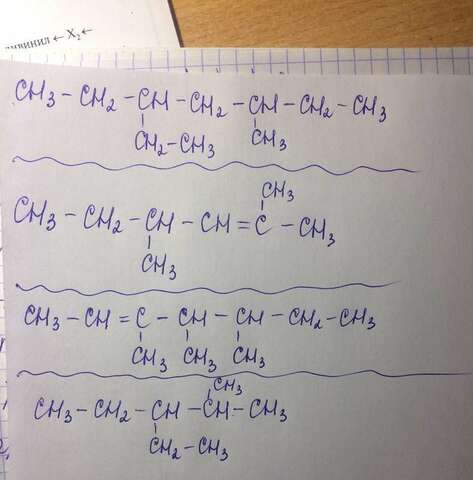 дивинил ← X₂ ←
CH₃ – CH₂ – CH – CH₂ – CH – CH₂ – CH₃
CH₂ – CH₃ CH₃
CH₃
CH₃ – CH₂ – CH – CH = C – CH₃
CH₃
CH₃ – CH = C – CH – CH – CH₂ – CH₃
CH₃ CH₃ CH₃
CH₃
CH₃ – CH₂ – CH – CH – CH₃
CH₂ – CH₃